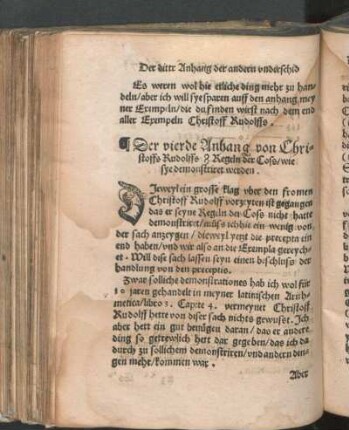 Der dritt Anhang der andern vnderschid
Es weren wol hie etliche ding mehr zu han-
deln/aber ich will sye sparen auff den anhang mey
ner Exempeln/die du finden wirst nach dem end
aller Exempeln Christoff Rudolffs.
¶ Der vierde Anhang von Chri-
stoffs Rudolffs 8 Regeln der Coss/wie
sye demonstriret werden.
DIeweyl ein grosse klag vber den fromen
Christoff Rudolff vorzeyten ist gegangen
das er seyne Regeln der Coss nicht hatte
demonstrirt/mus ich hie ein wenig von
der sach anzeygen/dieweyl yetzt die precepta ein
end haben/vnd wir also an die Exempla gereych-
et. Will dise sach lassen seyn einen bschluss der
handlung von den preceptis.
Zwar solliche demonstrationes hab ich wol für
10 jaren gehandelt in meyner latinischen Arith
metica/libro 3. Capite 4. vermeynet Christoff
Rudolff hette von diser sach nichts gewusst. Ich
aber hett ein gut benügen daran/das er andere
ding so getrewlich hett dar gegeben/das ich da
durch zu sollichem demonstriren/vnd andern din-
gen mehr/kommen war.
Aber